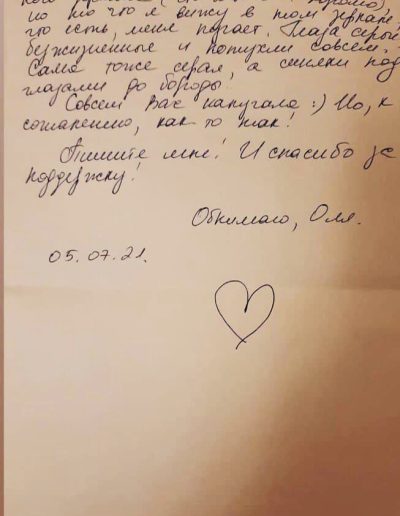 но то что я вижу в том зеркале,
что есть, меня пугает. Глаза серые
безжизненные и потухли совсем.
Сама тоже серая, а синяки под
глазами до бороды.
Совсем Вас напугала :) Но, к
сожалению, как то так!
Пишите мне! И спасибо за
поддержку!
Обнимаю, Оля.
05.07.21.